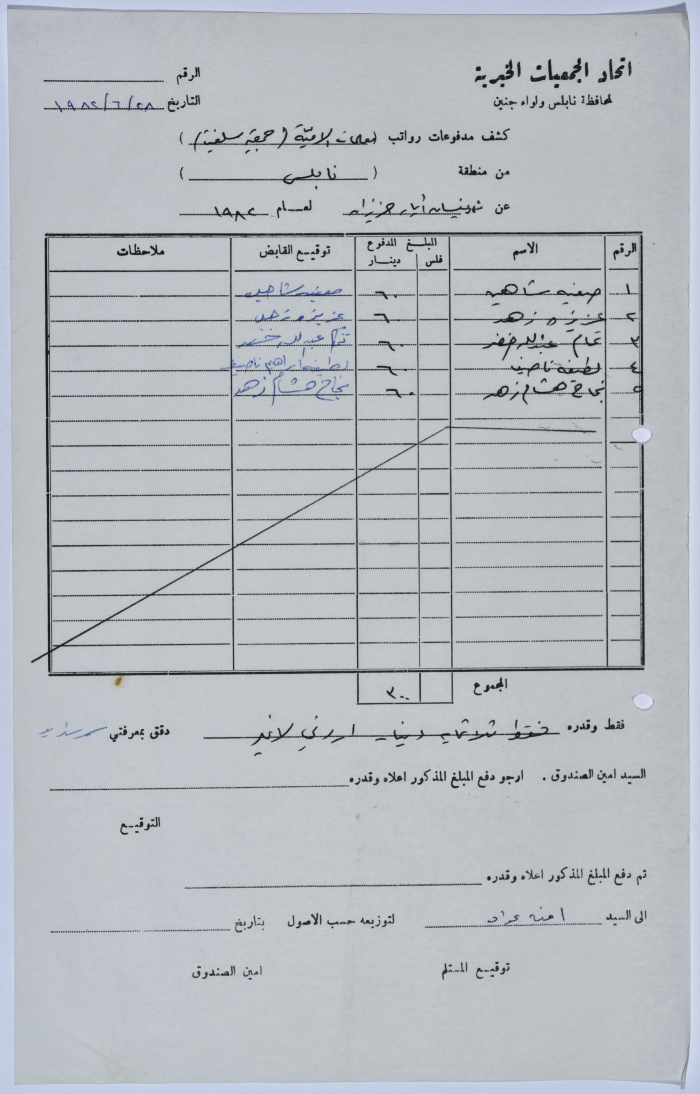 اتحاد الجمعيات الخيرية
لمحافظة نابلس ولواء جنين
الرقم
التاريخ ١٩٨٢/٦/٢٨
كشف مدفوعات رواتب (معلمات الامية (جمعية سلفيت))
من منطقة (نابلس)
عن شهر نيسان أيار حزيران لعام ١٩٨٢
الرقم الاسم المبلغ المدفوع توقيع القابض ملاحظات
فلس دينار
١ صفيه شاهين ٦٠ صفيه شاهين
٢ عزيزه زهد ٦٠ عزيزه زهد
٣ تمام عبدالله خضر ٦٠ تمام عبدالله خضر
٤ لطيفه ناصيف ٦٠ لطيفه ابراهيم ناصيف
٥ نجاح هشام زهد ٦٠ نجاح هشام زهد
المجموع ٣٠٠
فقط وقدره فقط ثلاثمايه دينار اردني لاغير دقق بمعرفتي
السيد امين الصندوق . ارجو دفع المبلغ المذكور اعلاه وقدره
التوقيع
تم دفع المبلغ المذكور اعلاه وقدره
الى السيد امنه لتوزيعه حسب الأصول بتاريخ
توقيع المستلم امين الصندوق